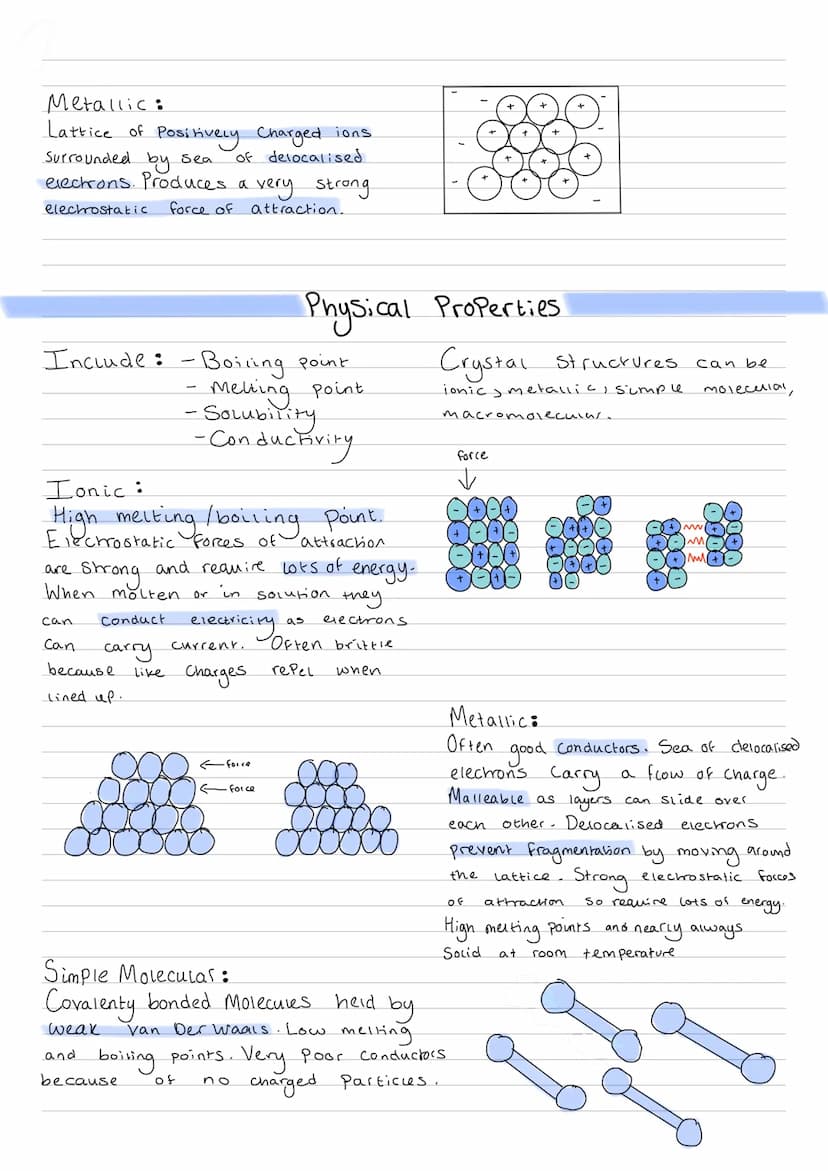 Metallic:
Lattice of Positively Charged ions
surrounded by sea of delocalised
electrons. Produces a very strong
electrostatic force of attraction.
Physical Properties
Include: - Boiling point
- Melting point
- Solubility
- Conductivity
Crystal Structures can be
ionic, metallic, simple molecular,
macromolecular.
Ionic:
High melting/boiling point.
Electrostatic forces of attraction
are strong and require lots of energy.
When molten or in solution they
can conduct electricity as electrons
can carry current. Often brittle
because like charges repel when
lined up.
force
force
force
Metallic:
Often good conductors. Sea of delocalised
electrons carry a flow of charge.
Malleable as layers can slide over
each other. Delocalised electrons
prevent fragmentation by moving around
the lattice. Strong electrostatic forces
of attraction so require lots of energy.
High melting points and nearly always
Solid at room temperature
Simple Molecular:
Covalenty bonded Molecules held by
weak Van Der Waals. Low melting
and boiling points. Very Poor conductors
because of no charged Particles.